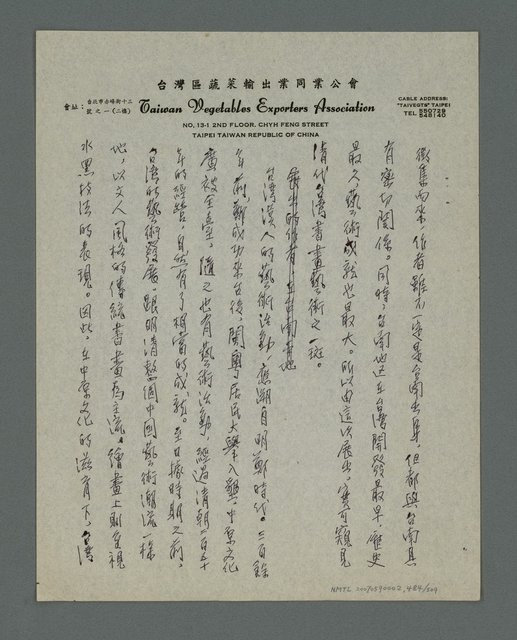 台灣區蔬菜輸出業同業公會
會址：台北市赤峰街十三號之一(二樓)
Taiwan Vegetables Exporters Association
CABLE ADDRESS:
"TAIVEGTS" TAIPEI
NO. 13-1 2ND FLOOR, CHYH FENG STREET
TAIPEI TAIWAN REPUBLIC OF CHINA
徵集而來，作者雖不一定是台南出身，但都與台南具
有密切關係。同時，台南地区在台灣開發最早，歷史
最久，藝術成就也最大。所以由這次展出，實可窺見
清代台灣書畫藝術之一斑。
台灣漢人的藝術活動，應溯自明鄭時代。三百餘
年前鄭成功來台後，閩粵居民大舉入墾，中原文化
廣被全臺，隨之也有藝術活動，經過清朝二百五十
年的經營，自然有了相當的成就。至日據時期之前，
台灣的藝術發展，跟明清整個中國藝術潮流一樣
地，以文人風格的傳統書畫為主流。繪畫上則重視
水墨技法的表現。因此，在中原文化的滋育下，台灣
NMTL 20070590002, 484/509